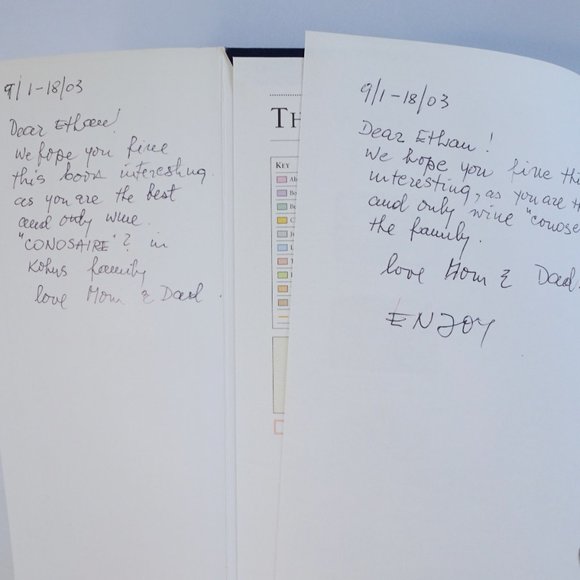 9/1-18/03
Dear Ethan!
We hope you fine
this book interesting
as you are the best
and only wine
"CONOSAIRE"? in
Kohns family
love Mom & Dad.
TH
KEY
9/1-18/03
Dear Ethan!
We hope you fine thi
interesting, as you are th
and only wine "conose
the family.
love Mom & Dad.
ENJOY